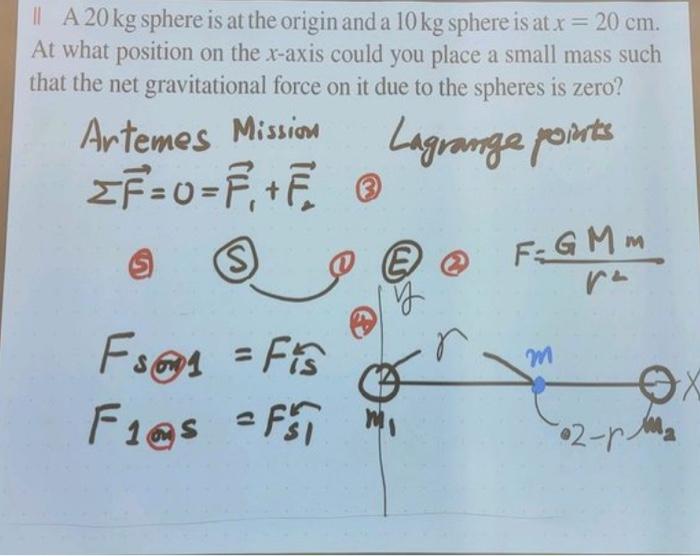 || A 20 kg sphere is at the origin and a 10 kg sphere is at x = 20 cm.
At what position on the x-axis could you place a small mass such
that the net gravitational force on it due to the spheres is zero?
Artemes Mission Lagrange points
ΣF⃗ = 0 = F⃗₁ + F⃗₂ ③
⑤ Ⓢ ① Ⓔ ② F = G M m / r²
y
④
F s on 1 = F 1s r m
X
F 1 on s = F s1 m₁ .2-r m₂